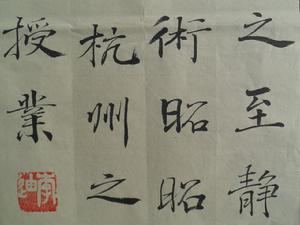 之至静
術昭昭
杭州之
授業